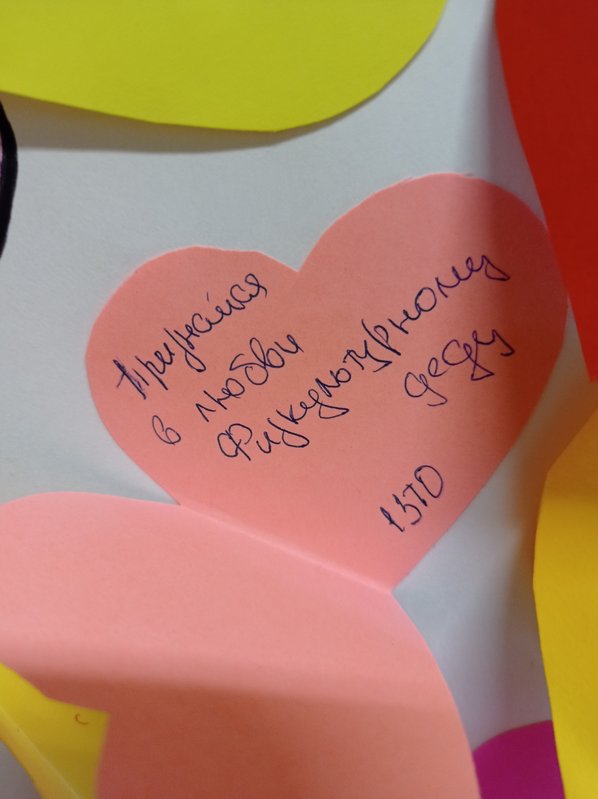 Признайся
в любви
Физкультурному
деду
1370